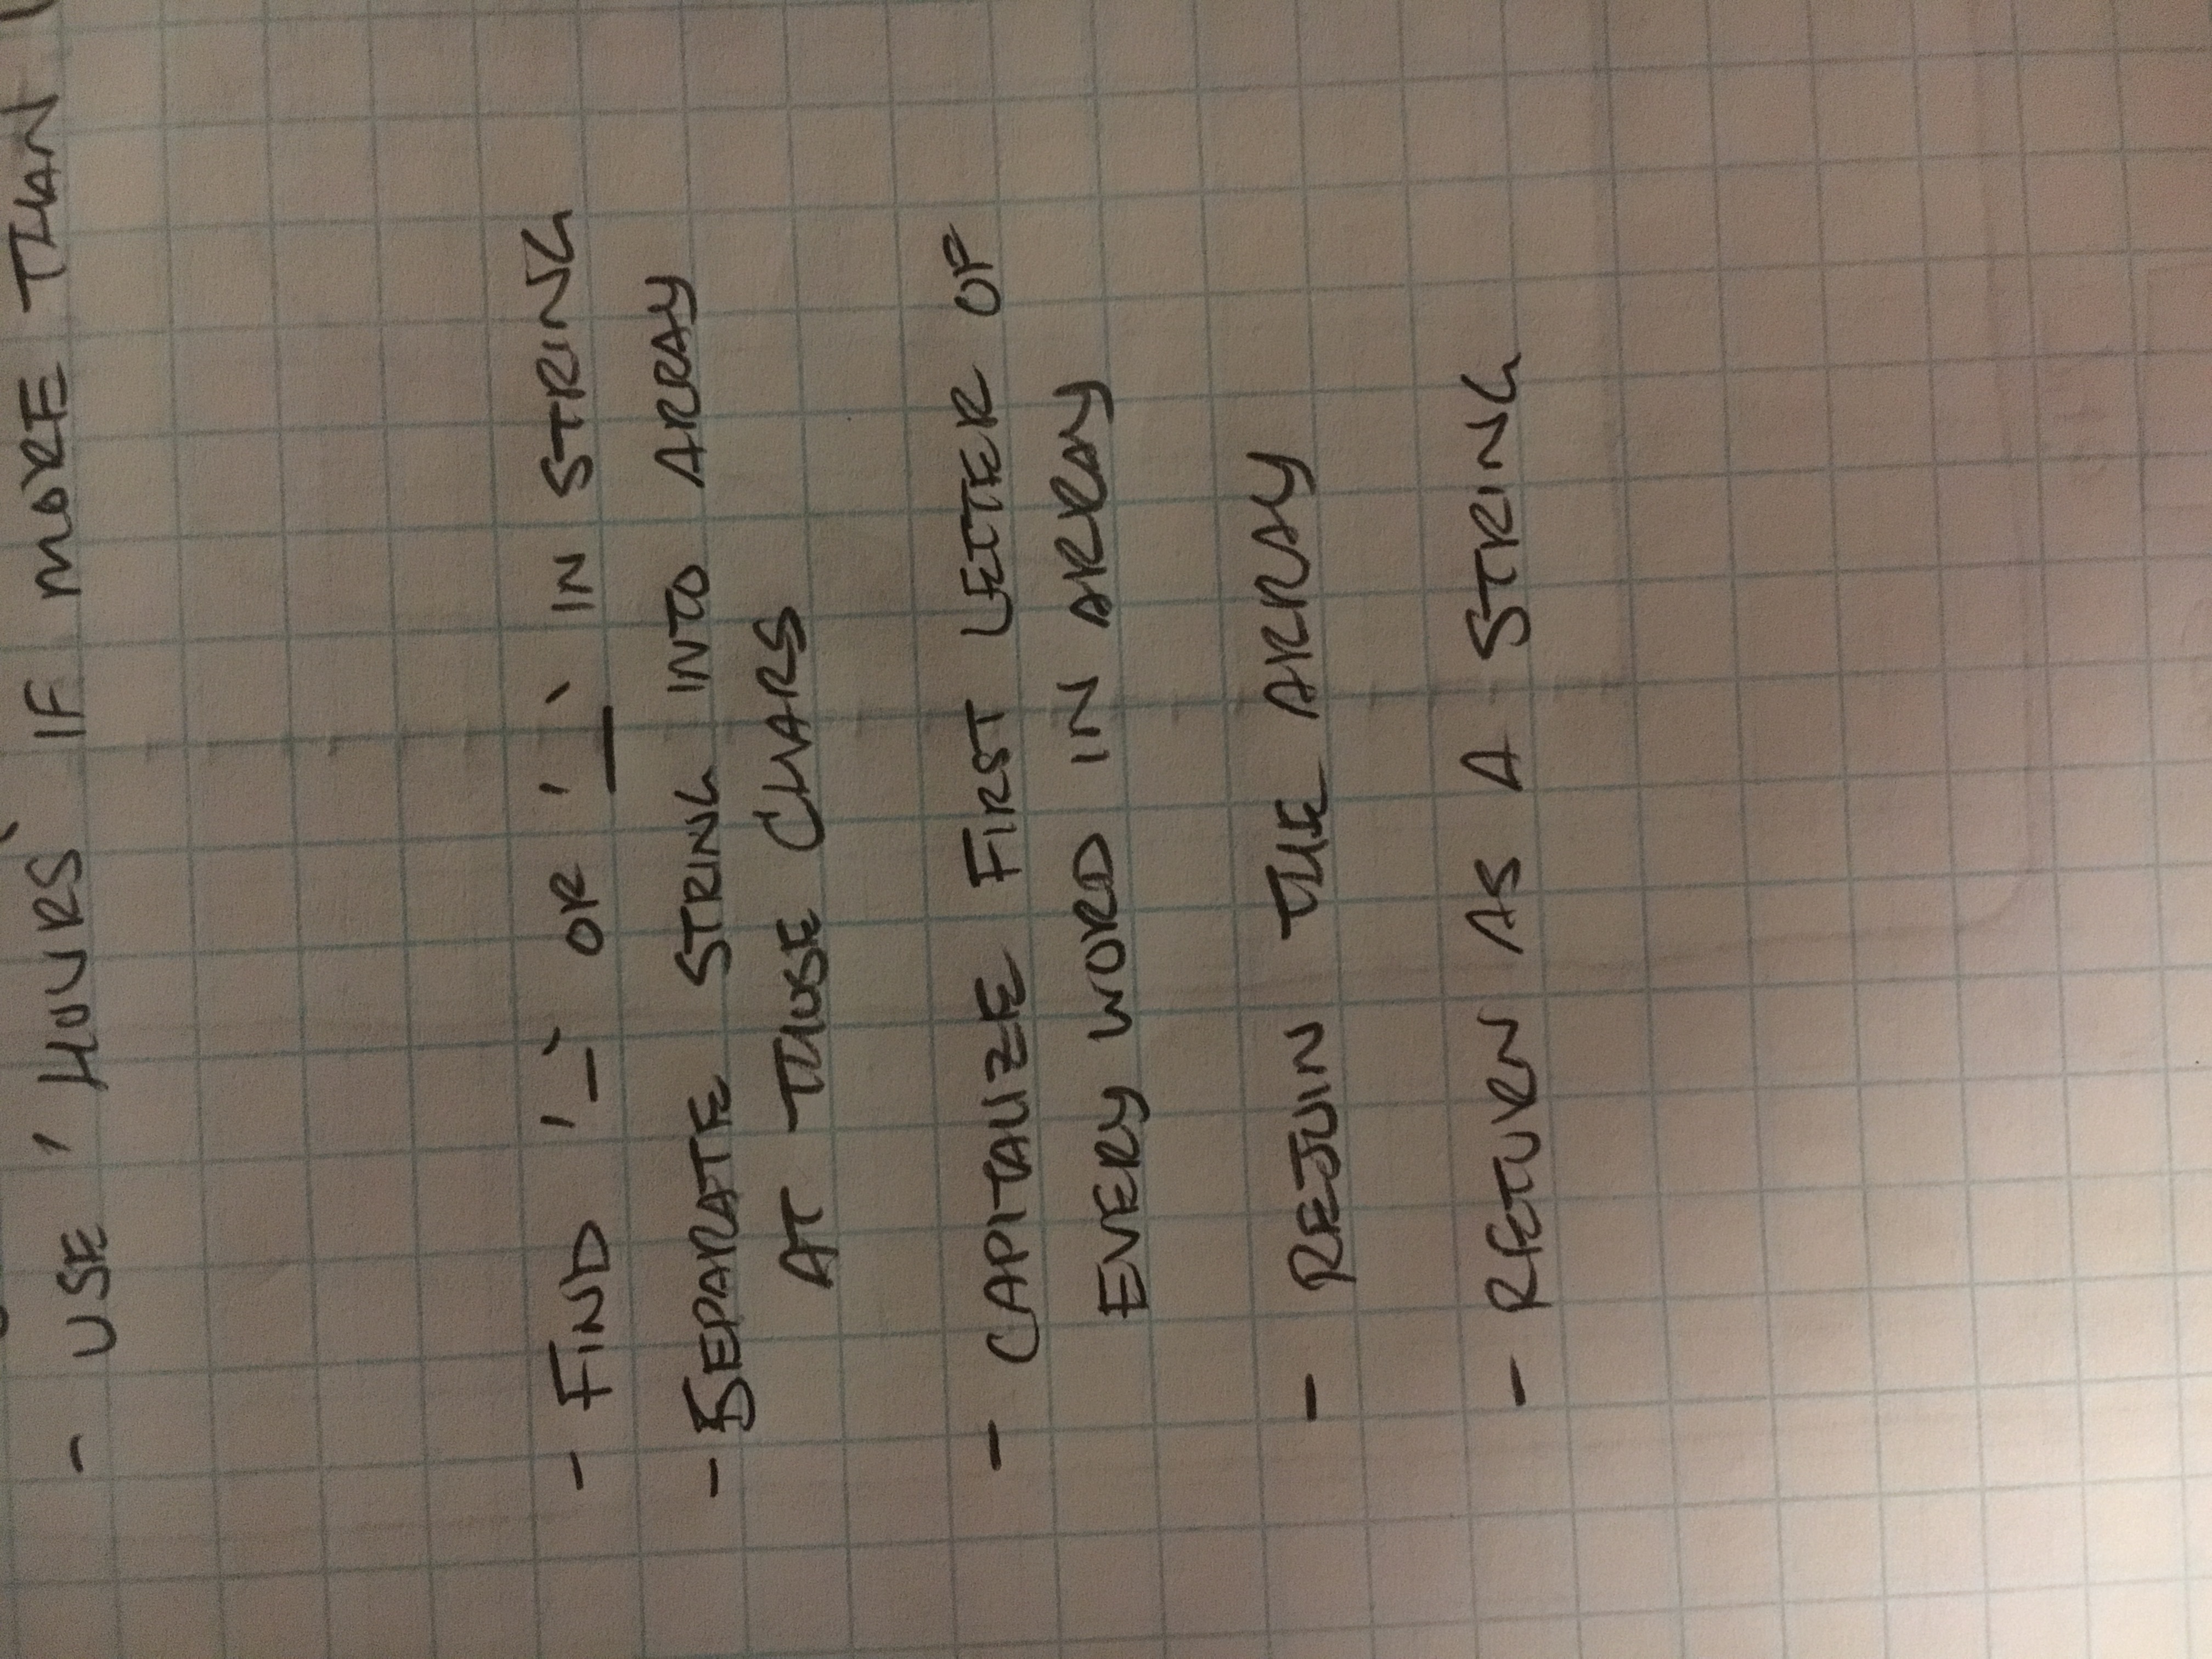 - USE 'HOURS' IF MORE THAN
- FIND '-' OR '_' IN STRING
- SEPARATE STRING INTO ARRAY
AT THOSE CHARS
- CAPITALIZE FIRST LETTER OF
EVERY WORD IN ARRAY
- REJOIN THE ARRAY
- RETURN AS A STRING